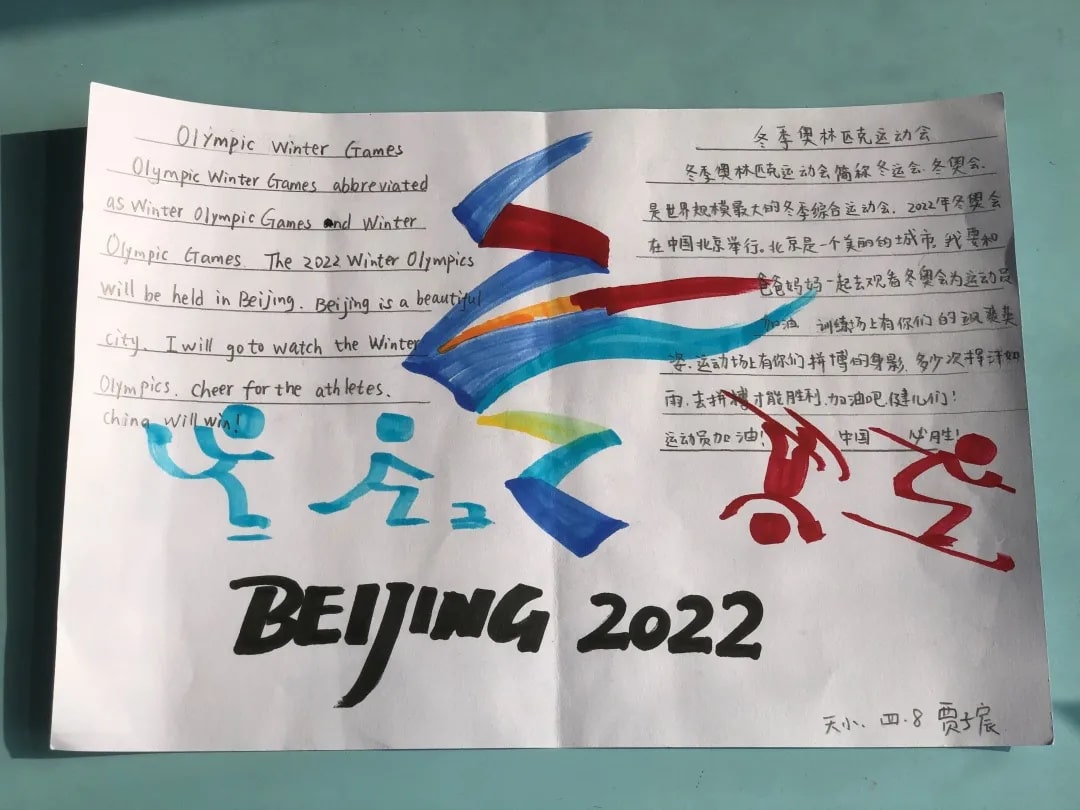 Olympic Winter Games
Olympic Winter Games abbreviated
as Winter Olympic Games and Winter
Olympic Games. The 2022 Winter Olympics
will be held in Beijing. Beijing is a beautiful
city. I will go to watch the Winter
Olympics. Cheer for the athletes.
China will win!
冬季奥林匹克运动会
冬季奥林匹克运动会简称冬运会.冬奥会.
是世界规模最大的冬季综合运动会.2022年冬奥会
在中国北京举行。北京是一个美丽的城市,我要和
爸爸妈妈一起去观看冬奥会为运动员
加油.训练场上有你们的飒爽英
姿.运动场上有你们拼搏的身影,多少次挥汗如
雨.去拼搏才能胜利.加油吧,健儿们!
运动员加油! 中国 必胜!
BEIJING 2022
天小、四.8 贾子宸